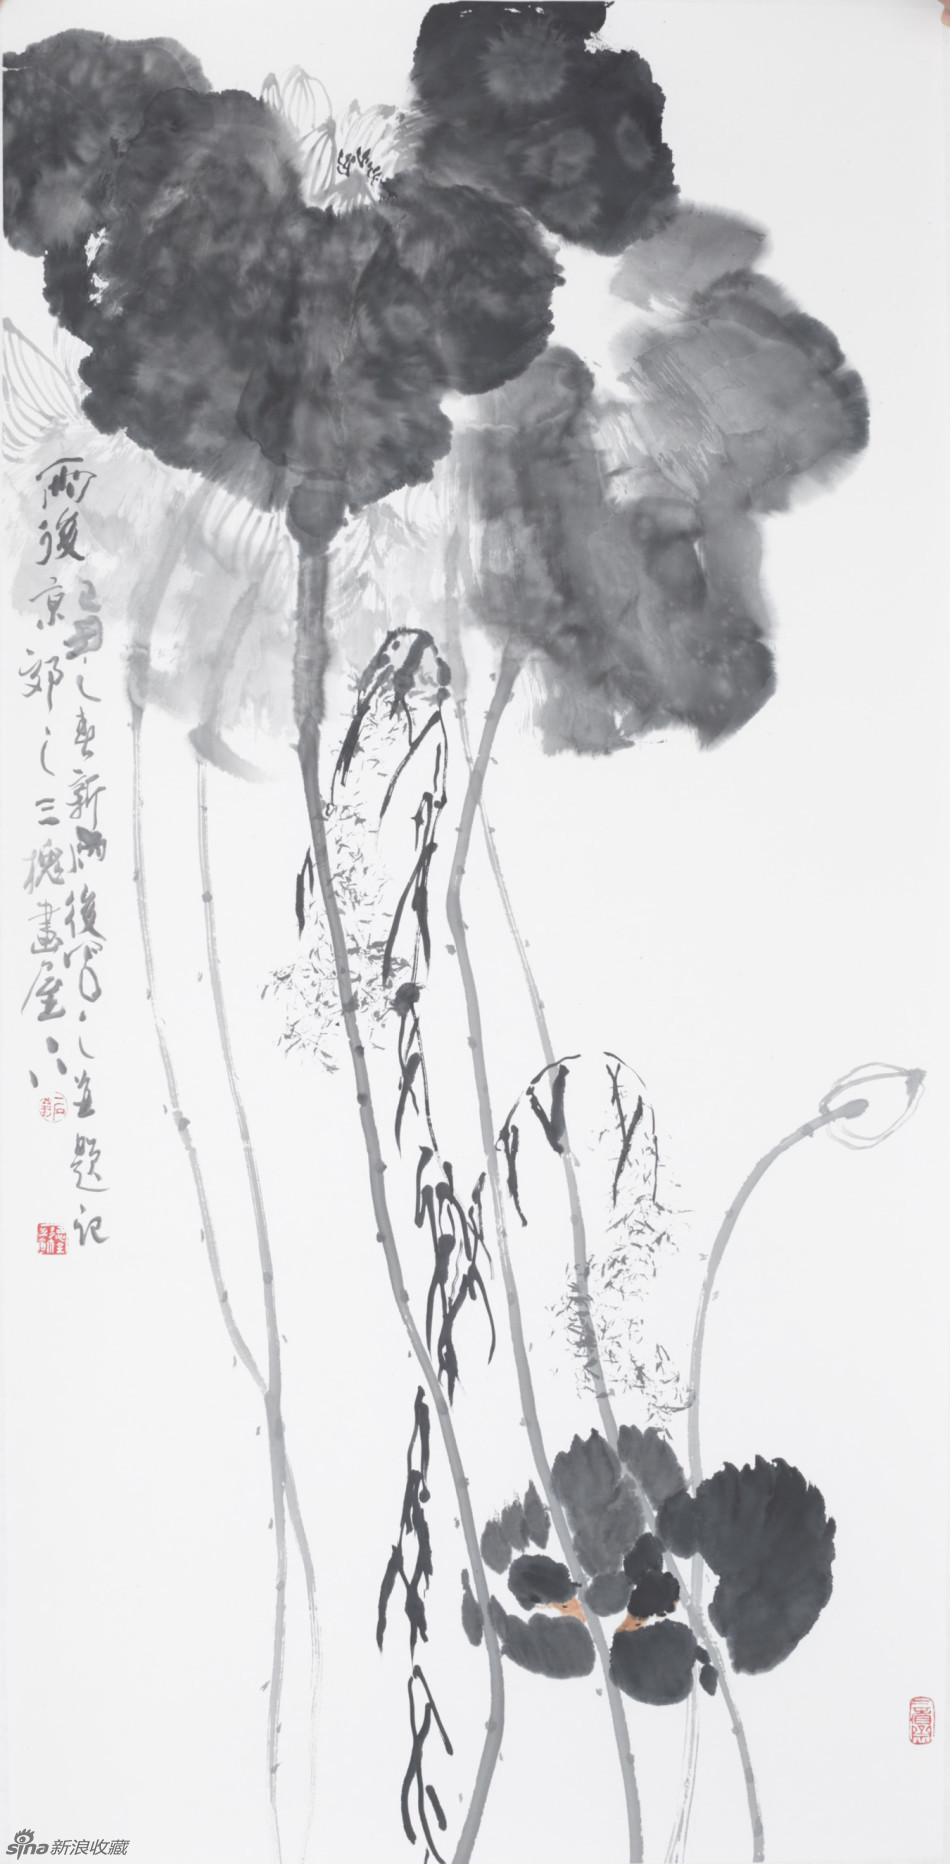 雨後
己丑之春新雨後寫之並題記
京郊之三槐畫屋
sina新浪收藏